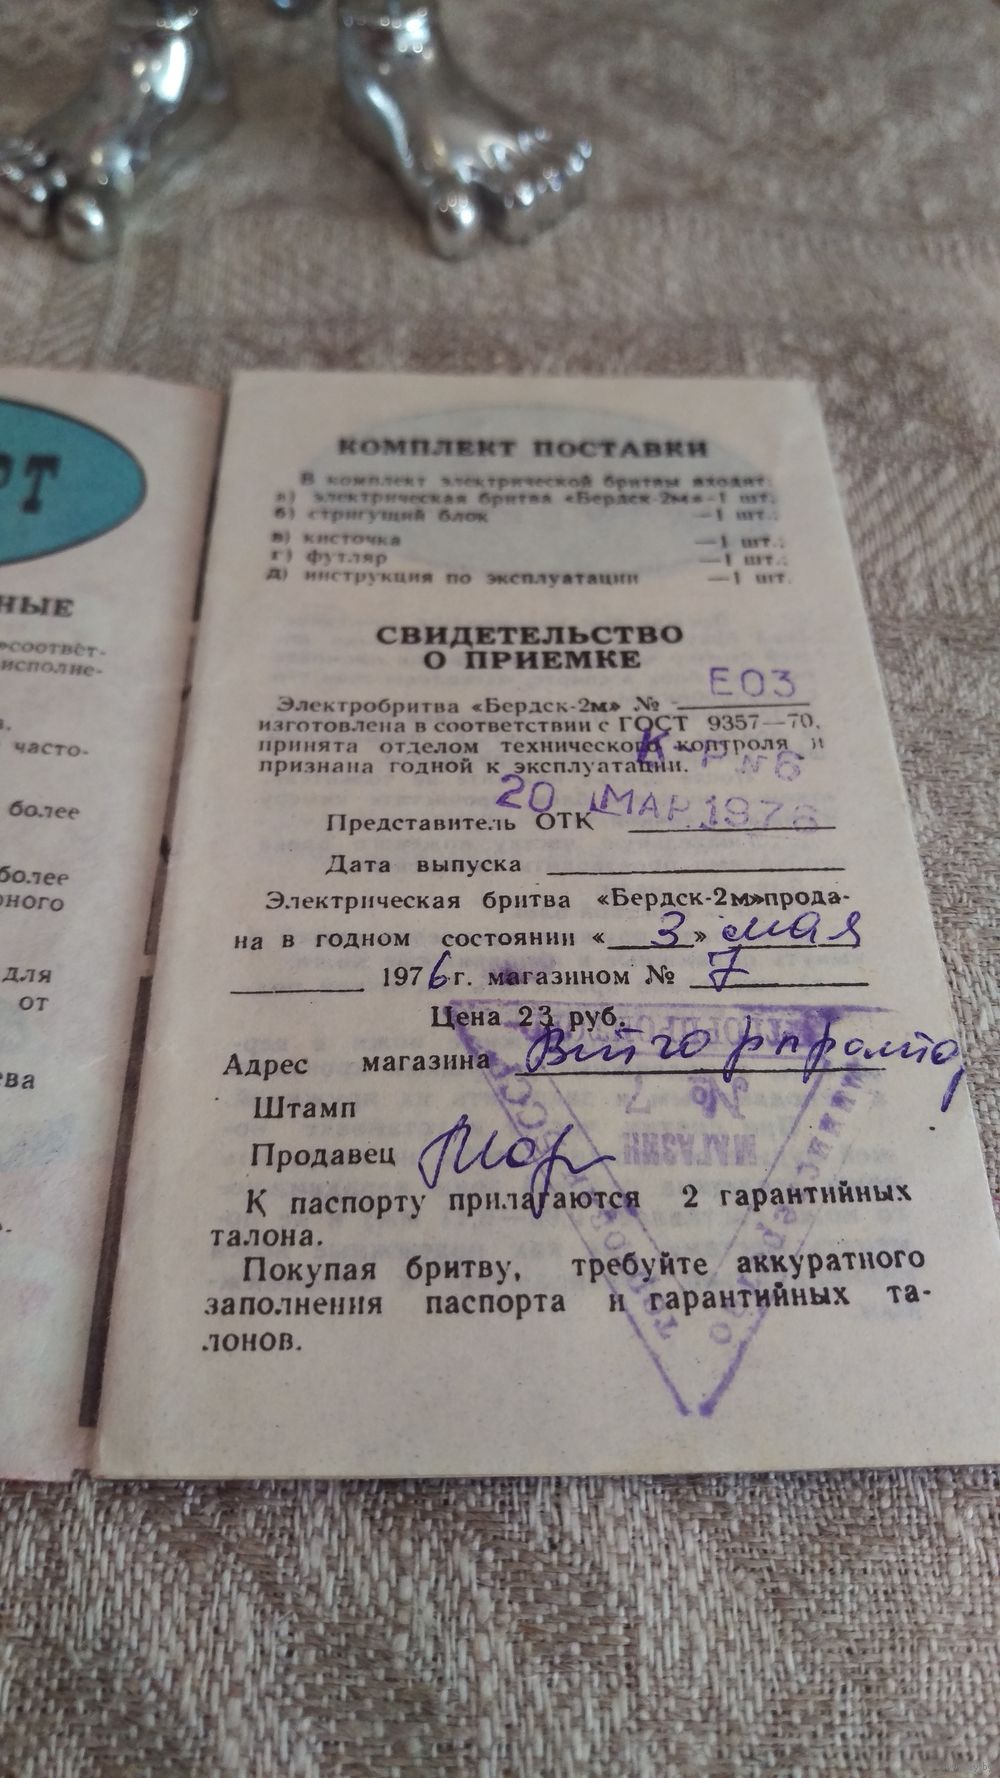 РТ
НЫЕ
соответ-
исполне-
часто-
более
более
для
от
КОМПЛЕКТ ПОСТАВКИ
В комплект электрической бритвы входят:
а) электрическая бритва «Бердск-2м» -1 шт.
б) стригущий блок —1 шт.;
в) кисточка —1 шт.;
г) футляр —1 шт.;
д) инструкция по эксплуатации —1 шт.
СВИДЕТЕЛЬСТВО
О ПРИЕМКЕ
Электробритва «Бердск-2м» № Е03
изготовлена в соответствии с ГОСТ 9357—70,
принята отделом технического контроля и
признана годной к эксплуатации.
20 МАР 1976
Представитель ОТК
Дата выпуска
Электрическая бритва «Бердск-2м»прода-
на в годном состоянии « 3 » мая
1976 г. магазином № 7
Цена 23 руб.
Адрес магазина
Штамп
Продавец
МАГАЗИН
№ 7
К паспорту прилагаются 2 гарантийных
талона.
Покупая бритву, требуйте аккуратного
заполнения паспорта и гарантийных та-
лонов.